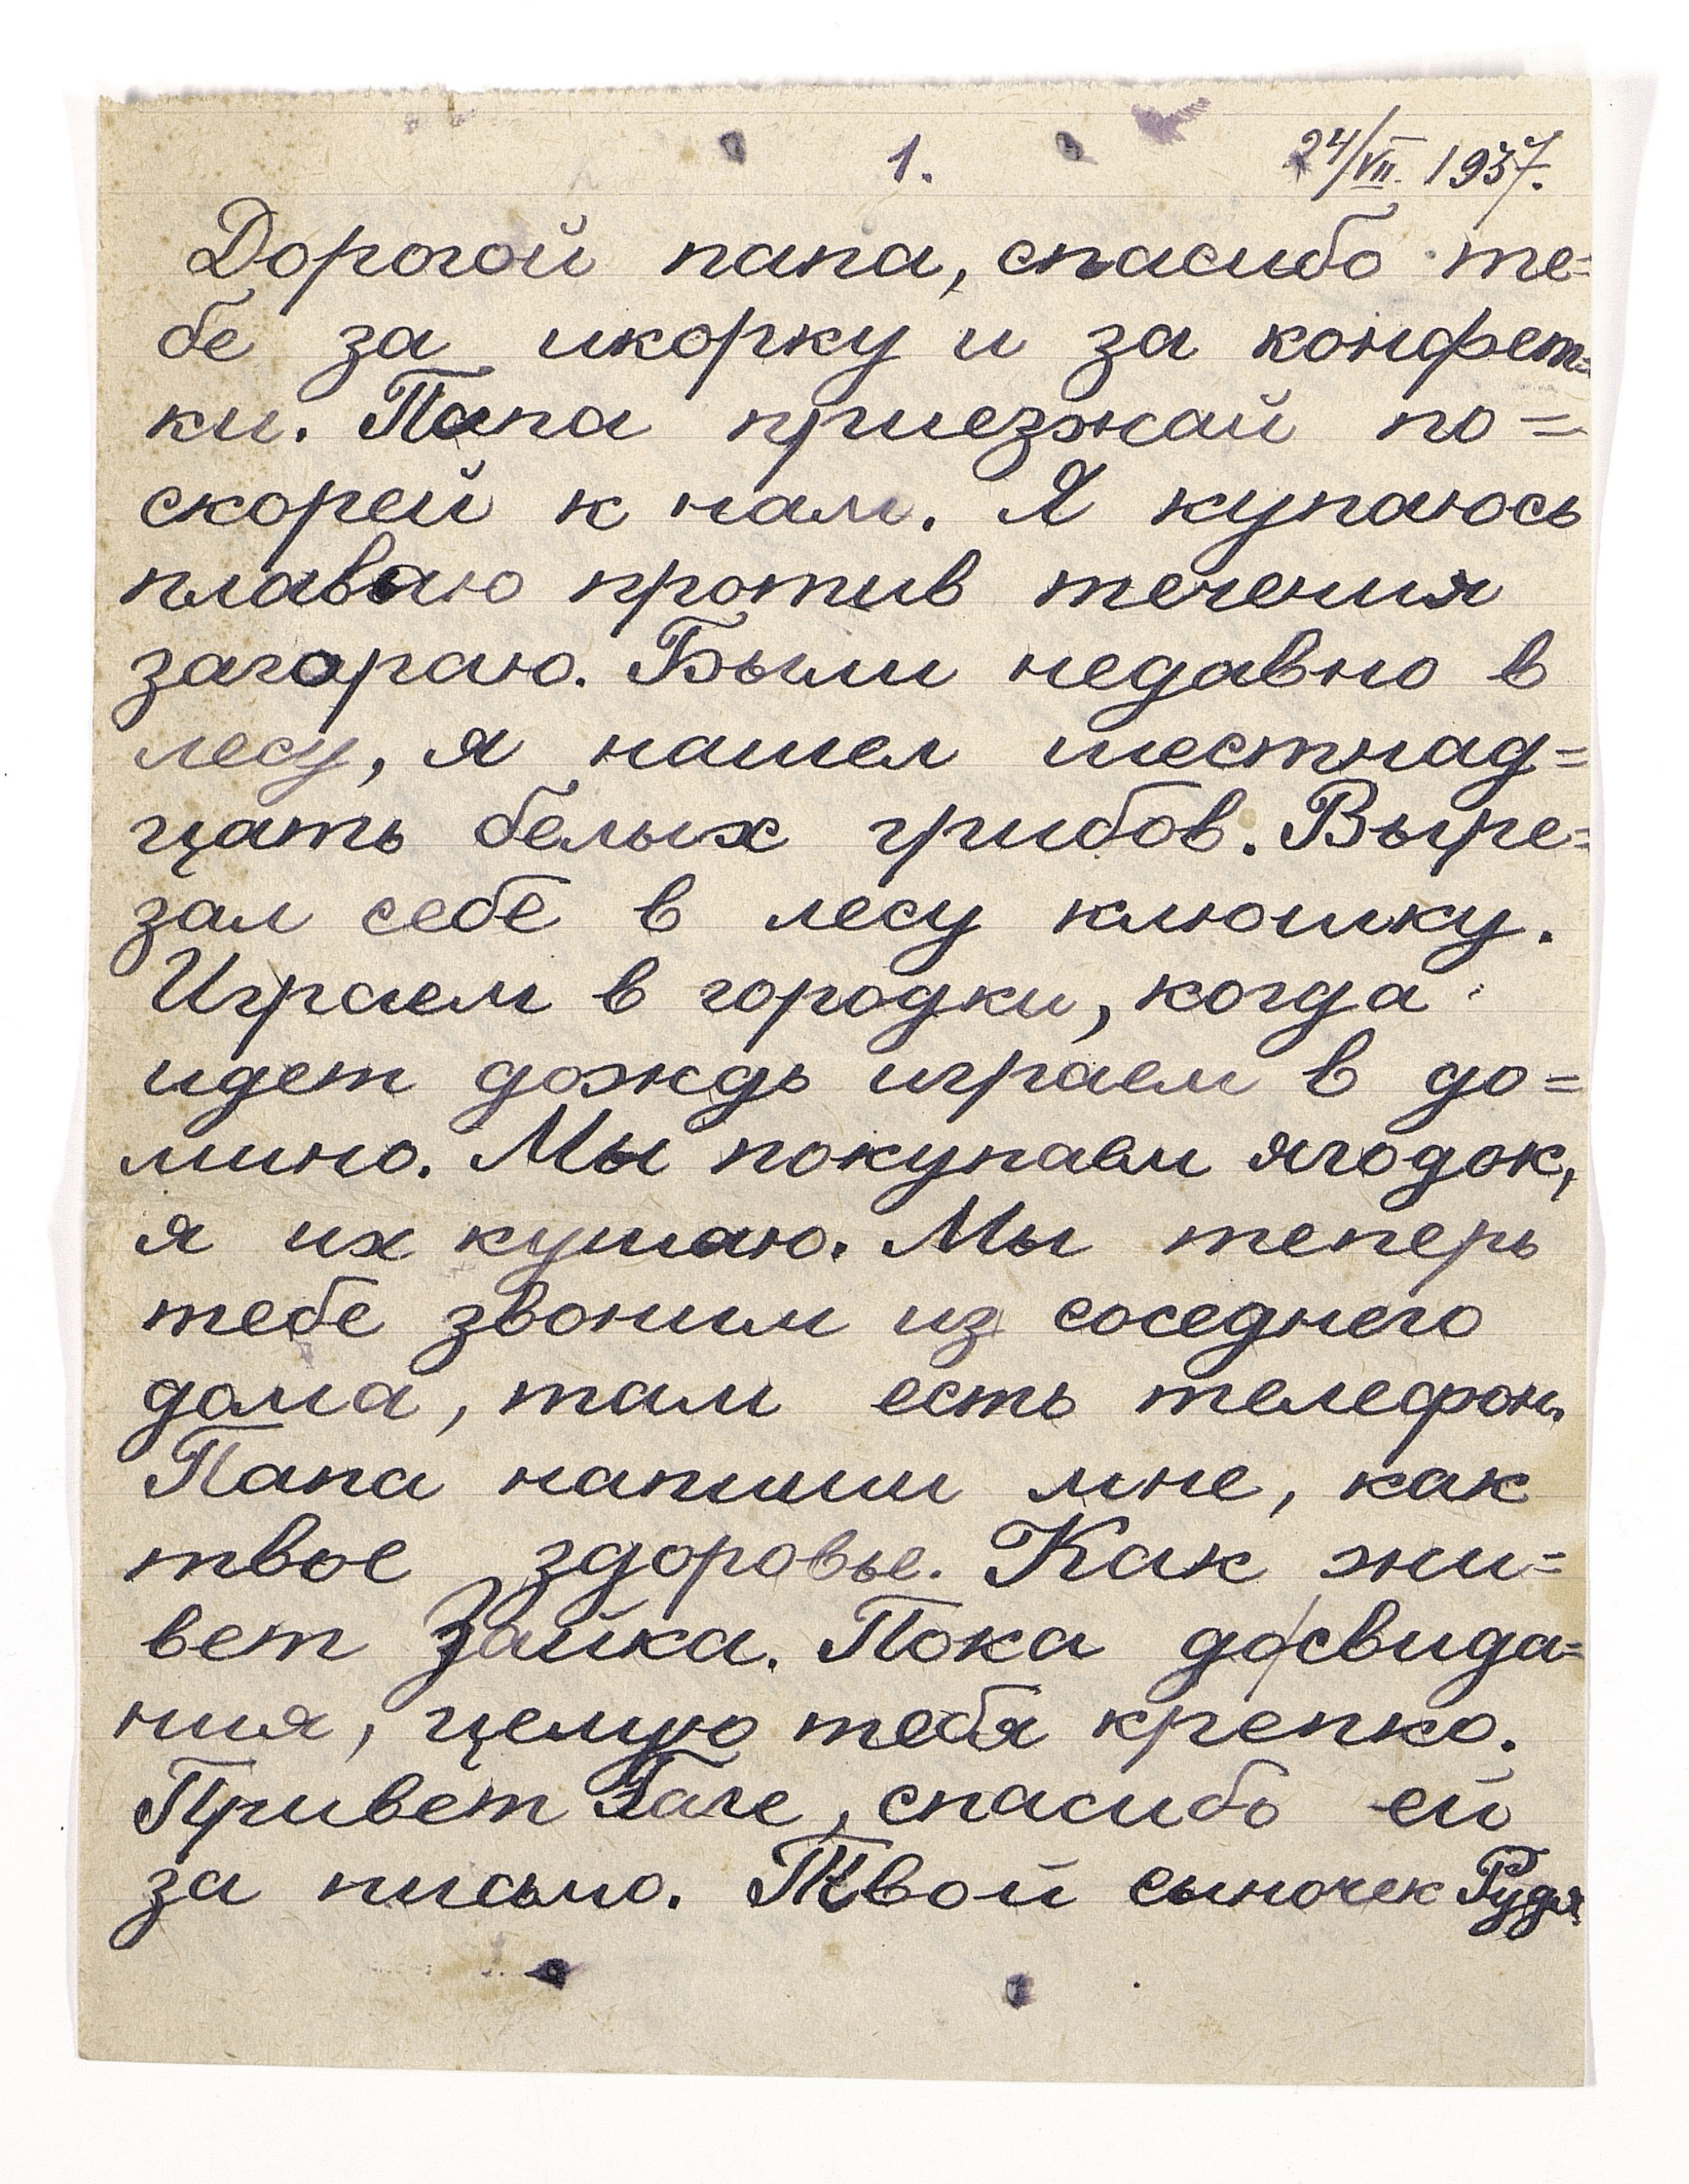 1. 24/VII 1937.
Дорогой папа, спасибо те=
бе за икорку и за конфет=
ки. Папа приезжай по=
скорей к нам. Я купаюсь
плаваю против течения
загораю. Были недавно в
лесу, я нашел шестнад=
цать белых грибов. Выре=
зал себе в лесу клюшку.
Играем в городки, когда
идет дождь играем в до=
мино. Мы покупаем ягодок,
я их кушаю. Мы теперь
тебе звоним из соседнего
дома, там есть телефон.
Папа напиши мне, как
твое здоровье. Как жи=
вет Зайка. Пока до/свида=
ния, целую тебя крепко.
Привет Гале, спасибо ей
за письмо. Твой сыночек Рудя.